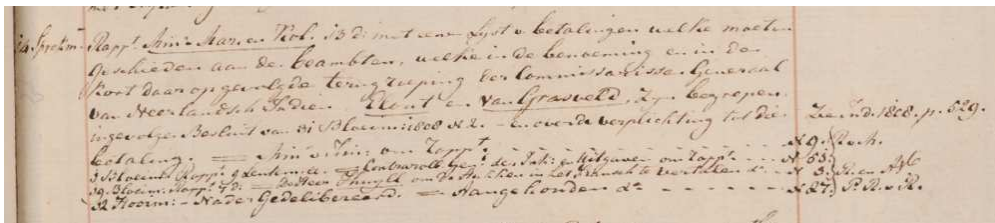 Rapp.t Min.r Mar. en Kol. 13 d.o met eene Lyst v. betalingen welke moeten
geschieden aan de beambten, welke in de benoeming en in de
kort daar op gevolgde terugroeping der Commissarissen Generaal
van Neerlandsch Indien Elout en van Grasveld, zyn begrepen
ingevolge Besluit van 31 Bloeim: 1808 N 2. en over de verplichting tot die Zie Ind. 1808. p. 529.
betaling. = Min.r v. Fin: om rapp.t N 9.
3 Bloeim: Rapp.t gen: de Ink: en Uitgaven om rapp.t N 53.
29. Bloeim: Rapp.t om de stukken in het Fransch te vertalen d.o N 3.
32 Hooim: Nader Gedelibereerd. = Aangehouden d.o N 27. P. R. v. R.